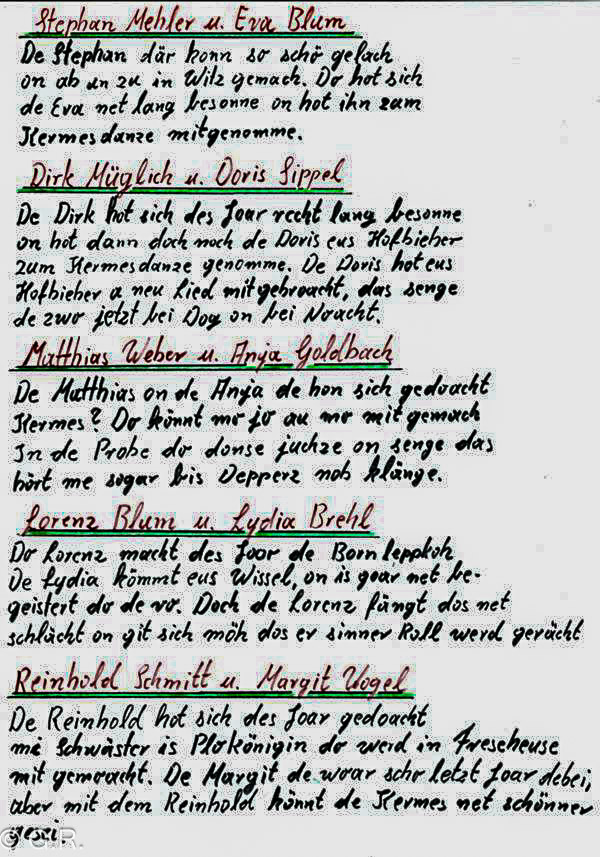 Stephan Mehler u. Eva Blum
De Stephan där konn so schö gelach
on ab un zu in Witz gemach. Do hot sich
de Eva net lang besonne on hot ihn zum
Kermesdanze mitgenomme.
Dirk Müglich u. Doris Sippel
De Dirk hot sich des Joar recht lang besonne
on hot dann doch noch de Doris eus Hofbieher
zum Kermesdanze genomme. De Doris hot eus
Hofbieher a neu Lied mitgebroacht, das senge
de zwo jetzt bei Dog on bei Noacht.
Matthias Weber u. Anja Goldbach
De Matthias on de Anja de hon sich gedoacht
Kermes? Do könnt mo jo au mo mit gemach
In de Probe do donse juchze on senge das
hört me sogar bis Depperz nob klänge.
Lorenz Blum u. Lydia Brehl
Do Lorenz macht des Joar de Bornleppkoh
De Lydia kömmt eus Wissel, on is goar net be-
geistert do de vo. Doch de Lorenz fängt dos net
schlächt on git sich möh dos er sinner Roll werd gerächt
Reinhold Schmitt u. Margit Vogel
De Reinhold hot sich des Joar gedoacht
mi Schwäster is Plokönigin do werd in Freseheuse
mit gemoacht. De Margit de woar scho letzt Joar debei,
aber mit dem Reinhold könnt de Kermes net schönner
gesei.
© G.R.